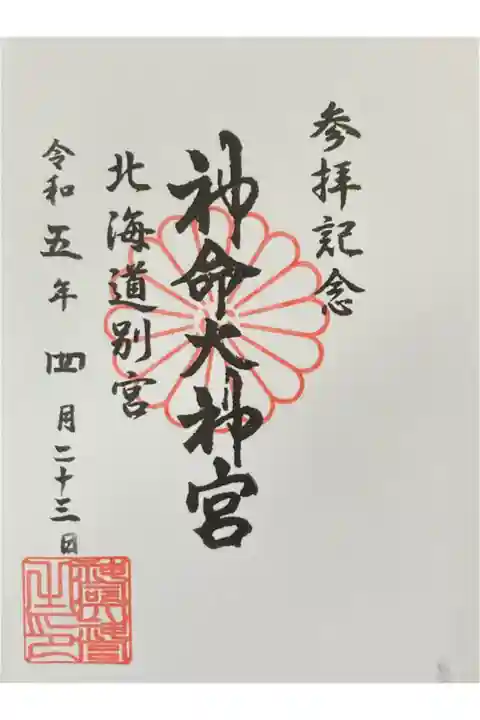 参拝記念
神命大神宮
北海道別宮
令和五年 四月二十三日